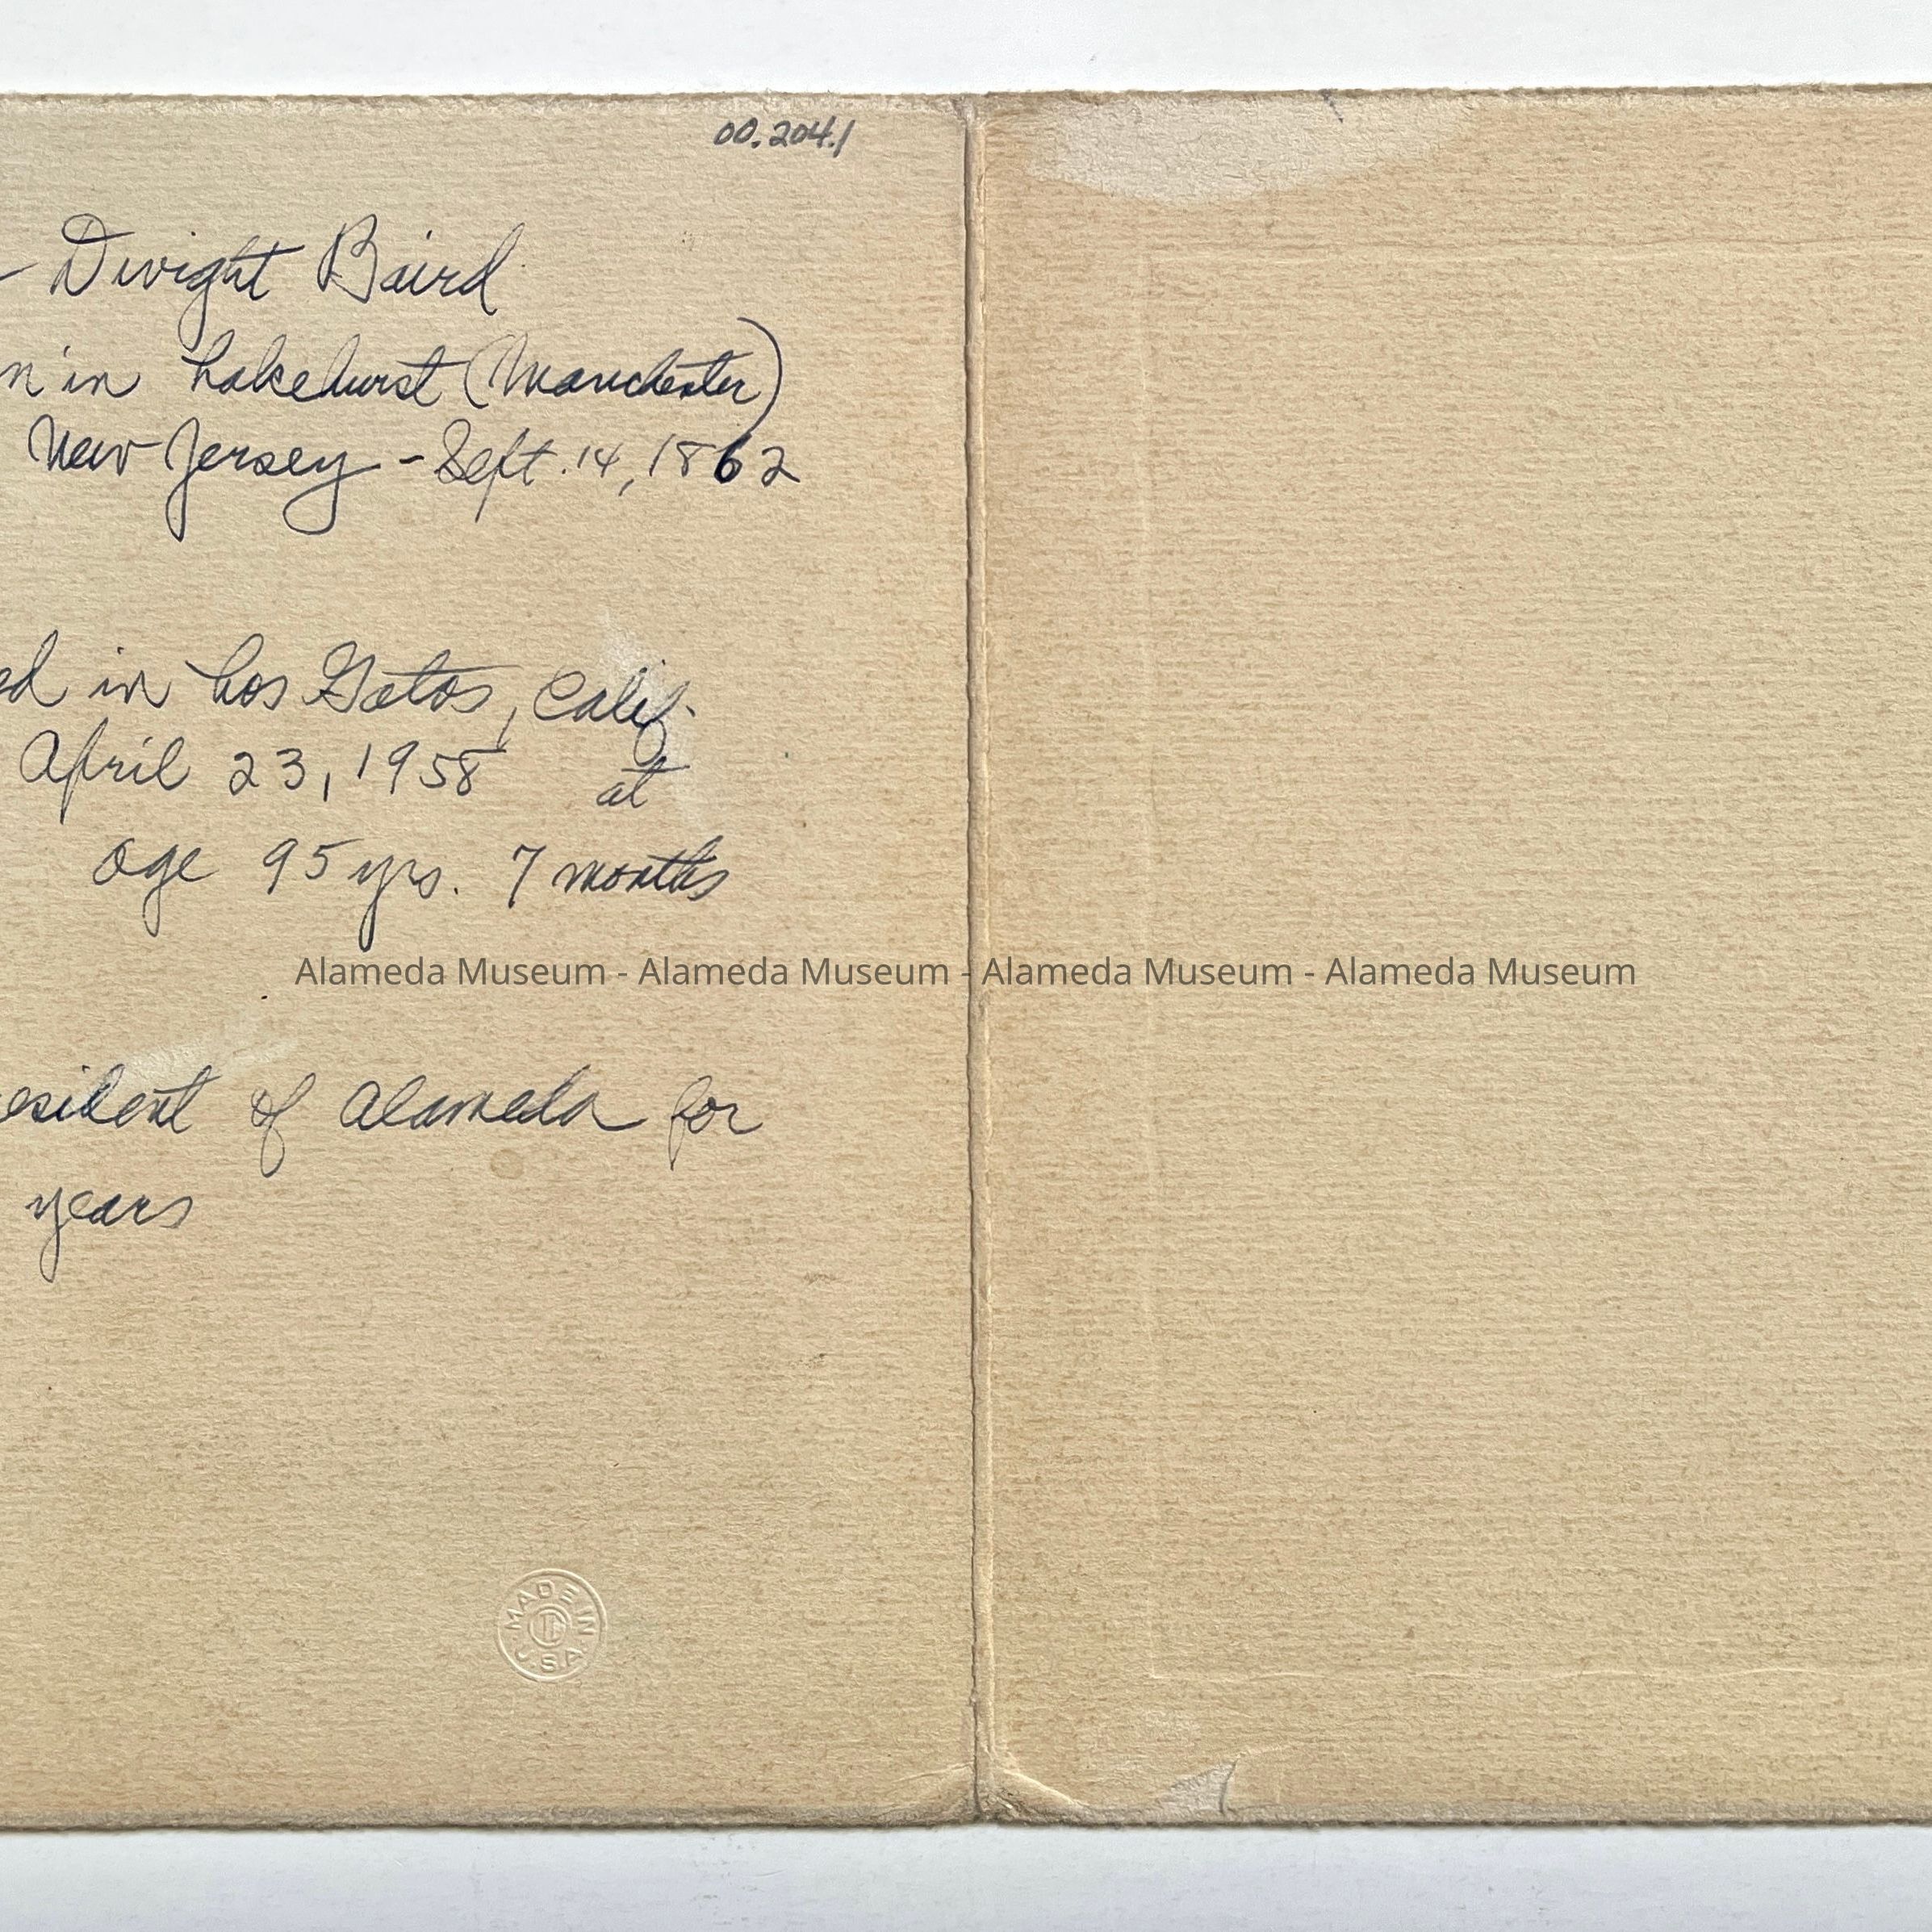 00.204.1
- Dwight Baird
n in Lakehurst (Manchester)
New Jersey - Sept. 14, 1862
ed in Los Gatos, Calif.
April 23, 1958 at
age 95 yrs. 7 months
Alameda Museum - Alameda Museum - Alameda Museum - Alameda Museum
esident of Alameda for
years
MADE IN U.S.A